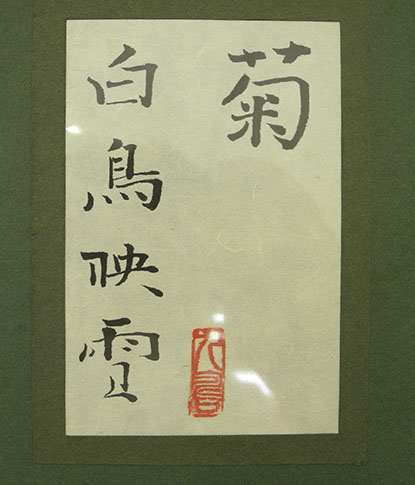 菊
白鳥映雪